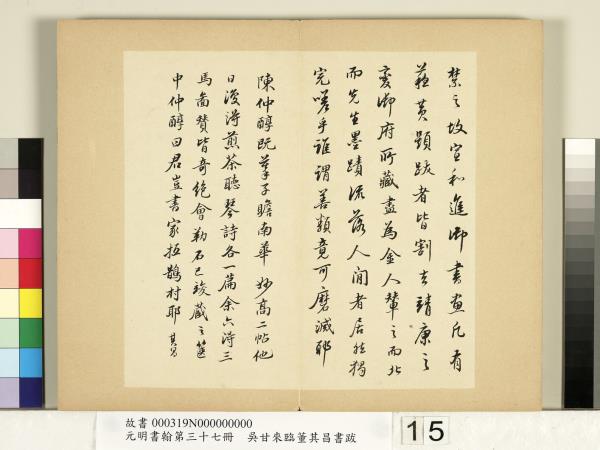 禁之故宣和進御書畫凡有
蘇黃題跋者皆割去靖康之
變御府所藏盡為金人輦之而北
而先生墨蹟流落人間者居然獨
完嗟乎誰謂善類竟可磨滅耶
陳仲醇既摹子瞻南華妙高二帖他
日復得煎茶聽琴詩各一篇余亦得三
馬圖贊皆奇絕會勒石已竣藏之篋
中仲醇曰君豈書家抵鵲村耶 其昌
故書 000319N000000000
元明書翰第三十七冊 吳甘來臨董其昌書跋
15